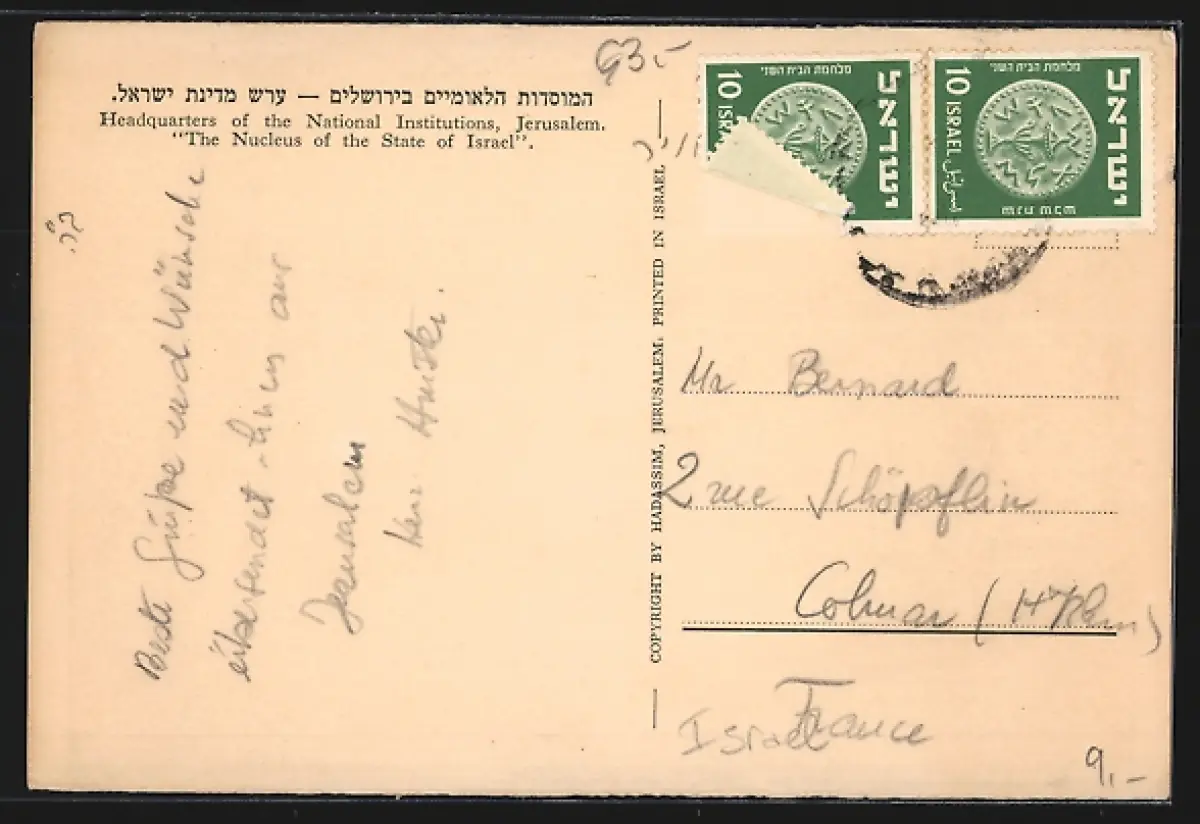 המוסדות הלאומיים בירושלים — ערש מדינת ישראל.
Headquarters of the National Institutions, Jerusalem.
"The Nucleus of the State of Israel".
Beste Grüße und Wünsche
übersendet Ihnen aus
Jerusalem
COPYRIGHT BY HADASSIM, JERUSALEM, PRINTED IN ISRAEL
מלחמת הבית השני
10 ISRAEL
ישראל
מלחמת הבית השני
10 ISRAEL اسرائيل
ישראל
Mr Bernard
2 rue Schöpflin
Colmar (Ht Rhin)
France
Israel
9,-